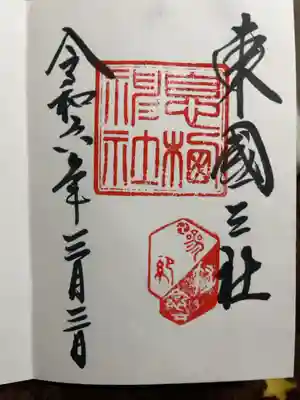 東國三社
息栖
神社
令和六年三月三日